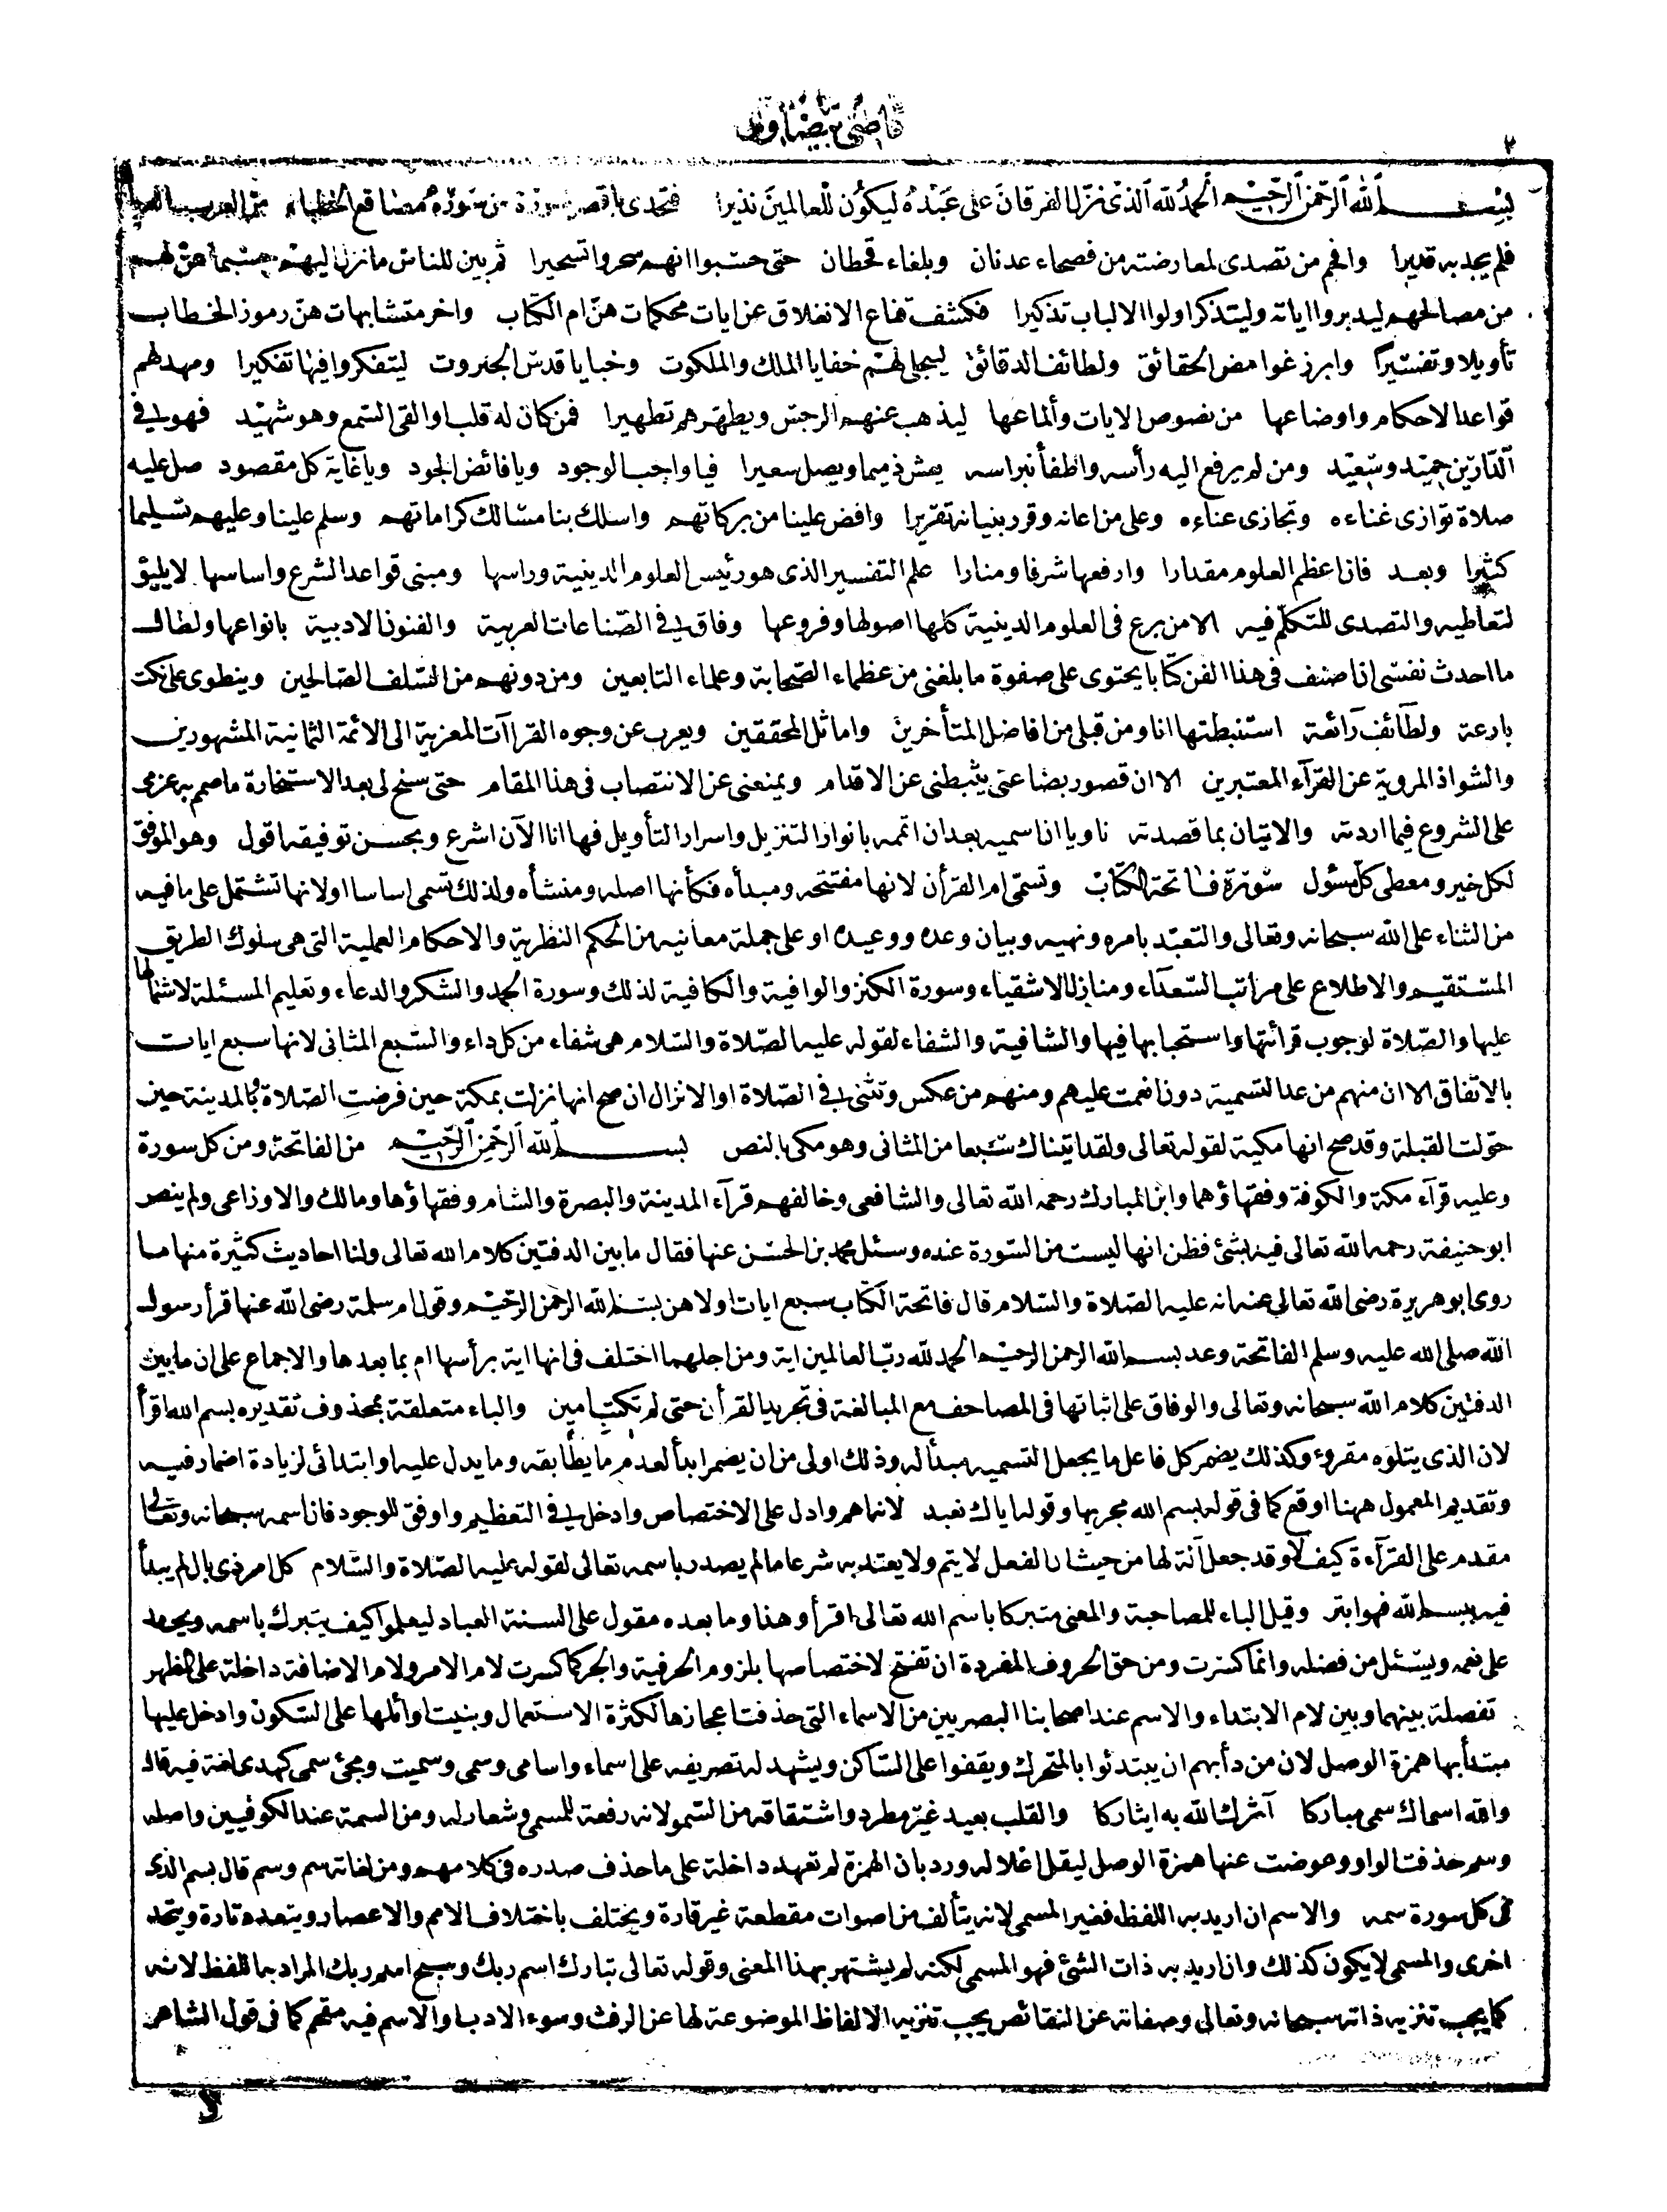 قاضى بيضاوى
٢
بسم الله الرحمن الرحيم الحمد لله الذى نزل الفرقان على عبده ليكون للعالمين نذيرا فتحدى باقصر سورة من سوره مصاقع الخطباء من العرب العرباء
فلم يجد به قديرا وافحم من تصدى لمعارضته من فصحاء عدنان وبلغاء قحطان حتى حسبوا انهم سحروا تسحيرا ثم بين للناس ما نزل اليهم حسبما عن لهم
من مصالحهم ليدبروا اياته وليتذكر اولوا الالباب تذكيرا فكشف قناع الانغلاق عن ايات محكمات هن ام الكتاب واخر متشابهات هن رموز الخطاب
تأويلا وتفسيرا وابرز غوامض الحقائق ولطائف الدقائق ليتجلى لهم خفايا الملك والملكوت وخبايا قدس الجبروت ليتفكروا فيها تفكيرا ومهد لهم
قواعد الاحكام واوضاعها من نصوص الايات وألماعها ليذهب عنهم الرجس ويطهرهم تطهيرا فمن كان له قلب او القى السمع وهو شهيد فهو فى
الدارين حميد وسعيد ومن لم يرفع اليه رأسه واطفأ نبراسه يعش ذميما ويصل سعيرا فيا واجب الوجود ويا فائض الجود ويا غاية كل مقصود صل عليه
صلاة توازى غناءه وتجازى عناءه وعلى من اعانه وقرر بنيانه تقريرا وافض علينا من بركاتهم واسلك بنا مسالك كراماتهم وسلم علينا وعليهم تسليما
كثيرا وبعد فان اعظم العلوم مقدارا وارفعها شرفا ومنارا علم التفسير الذى هو رئيس العلوم الدينية وراسها ومبنى قواعد الشرع واساسها لا يليق
لتعاطيه والتصدى للتكلم فيه الا من برع فى العلوم الدينية كلها اصولها وفروعها وفاق فى الصناعات العربية والفنون الادبية بانواعها ولطال
ما احدث نفسى ان اصنف فى هذا الفن كتابا يحتوى على صفوة ما بلغنى من عظماء الصحابة وعلماء التابعين ومن دونهم من السلف الصالحين وينطوى على نكت
بارعة ولطآئف رائعة استنبطتها انا ومن قبلى من افاضل المتأخرين واماثل المحققين ويعرب عن وجوه القراآت المعزية الى الائمة الثمانية المشهورين
والشواذ المروية عن القرآء المعتبرين الا ان قصور بضاعتى يثبطنى عن الاقدام ويمنعنى عن الانتصاب فى هذا المقام حتى سنح لى بعد الاستخارة ما صمم به عزمى
على الشروع فيما اردته والاتيان بما قصدته ناويا ان اسميه بعد ان اتممه بانوار التنزيل واسرار التأويل فها انا الآن اشرع وبحسن توفيقه اقول وهو الموفق
لكل خير ومعطى كل مسئول سورة فاتحة الكتاب وتسمى ام القرأن لانها مفتتحه ومبدأه فكأنها اصله ومنشأه ولذلك تسمى اساسا او لانها تشتمل على ما فيه
من الثناء على الله سبحانه وتعالى والتعبد بامره ونهيه وبيان وعده ووعيده او على جملة معانيه من الحكم النظرية والاحكام العملية التى هى سلوك الطريق
المستقيم والاطلاع على مراتب السعدآء ومنازل الاشقياء وسورة الكنز والوافية والكافية لذلك وسورة الحمد والشكر والدعاء وتعليم المسئلة لاشتمالها
عليها والصلاة لوجوب قرائتها او استحبابها فيها والشافية والشفاء لقوله عليه الصلاة والسلام هى شفاء من كل داء والسبع المثانى لانها سبع ايات
بالاتفاق الا ان منهم من عد التسمية دون انعمت عليهم ومنهم من عكس وتثنى فى الصلاة او الانزال ان صح انها نزلت بمكة حين فرضت الصلاة وبالمدينة حين
حولت القبلة وقد صح انها مكية لقوله تعالى ولقد اتيناك سبعا من المثانى وهو مكى بالنص بسم الله الرحمن الرحيم من الفاتحة ومن كل سورة
وعليه قرآء مكة والكوفة وفقهاؤهما وابن المبارك رحمه الله تعالى والشافعى وخالفهم قرآء المدينة والبصرة والشام وفقهاؤها ومالك والاوزاعى ولم ينص
ابو حنيفة رحمه الله تعالى فيه بشئ فظن انها ليست من السورة عنده وسئل محمد بن الحسن عنها فقال ما بين الدفتين كلام الله تعالى ولنا احاديث كثيرة منها ما
روى ابو هريرة رضى الله تعالى عنه انه عليه الصلاة والسلام قال فاتحة الكتاب سبع ايات اولاهن بسم الله الرحمن الرحيم وقول ام سلمة رضى الله عنها قرأ رسول
الله صلى الله عليه وسلم الفاتحة وعد بسم الله الرحمن الرحيم الحمد لله رب العالمين اية ومن اجلهما اختلف فى انها اية برأسها ام بما بعدها والاجماع على ان ما بين
الدفتين كلام الله سبحانه وتعالى والوفاق على اثباتها فى المصاحف مع المبالغة فى تجريد القرأن حتى لم تكتب امين والباء متعلقة بمحذوف تقديره بسم الله اقرأ
لان الذى يتلوه مقروء وكذلك يضمر كل فاعل ما يجعل التسمية مبدأ له وذلك اولى من ان يضمر ابدأ لعدم ما يطابقه وما يدل عليه او ابتدائى لزيادة اضمار فيه
وتقديم المعمول ههنا اوقع كما فى قوله بسم الله مجريها وقوله اياك نعبد لانه اهم وادل على الاختصاص وادخل فى التعظيم واوفق للوجود فان اسمه سبحانه وتعالى
مقدم على القرآءة كيف لا وقد جعل آلة لها من حيث ان الفعل لا يتم ولا يعتد به شرعا ما لم يصدر باسمه تعالى لقوله عليه الصلاة والسلام كل امر ذى بال لم يبدأ
فيه ببسم الله فهو ابتر وقيل الباء للمصاحبة والمعنى متبركا باسم الله تعالى اقرأ وهذا وما بعده مقول على السنة العباد ليعلموا كيف يتبرك باسمه ويحمد
على نعمه ويسئل من فضله وانما كسرت ومن حق الحروف المفردة ان تفتح لاختصاصها بلزوم الحرفية والجر كما كسرت لام الامر ولام الاضافة داخلة على المظهر
تفصلة بينهما وبين لام الابتداء والاسم عند اصحابنا البصريين من الاسماء التى حذفت اعجازها لكثرة الاستعمال وبنيت اوائلها على السكون وادخل عليها
مبتدأ بها همزة الوصل لان من دأبهم ان يبتدئوا بالمتحرك ويقفوا على الساكن ويشهد له تصريفه على اسماء واسامى وسمى وسميت ومجئ سمى كهدى لغة فيه قال
والله اسماك سمى مباركا آثرك الله به ايثاركا والقلب بعيد غير مطرد واشتقاقه من السمو لانه رفعة للمسمى وشعار له ومن السمة عند الكوفيين واصله
وسم حذفت الواو وعوضت عنها همزة الوصل ليقل اعلاله ورد بان الهمزة لم تعهد داخلة على ما حذف صدره فى كلامهم ومن لغاته سم وسم قال بسم الذى
فى كل سورة سمه والاسم ان اريد به اللفظ فغير المسمى لانه يتألف من اصوات مقطعة غير قارة ويختلف باختلاف الامم والاعصار ويتعدد تارة ويتحد
اخرى والمسمى لا يكون كذلك وان اريد به ذات الشئ فهو المسمى لكنه لم يشتهر بهذا المعنى وقوله تعالى تبارك اسم ربك وسبح اسم ربك المراد به اللفظ لانه
كما يجب تنزيه ذاته سبحانه وتعالى وصفاته عن النقائص يجب تنزيه الالفاظ الموضوعة لها عن الرفث وسوء الادب او الاسم فيه مقحم كما فى قول الشاعر